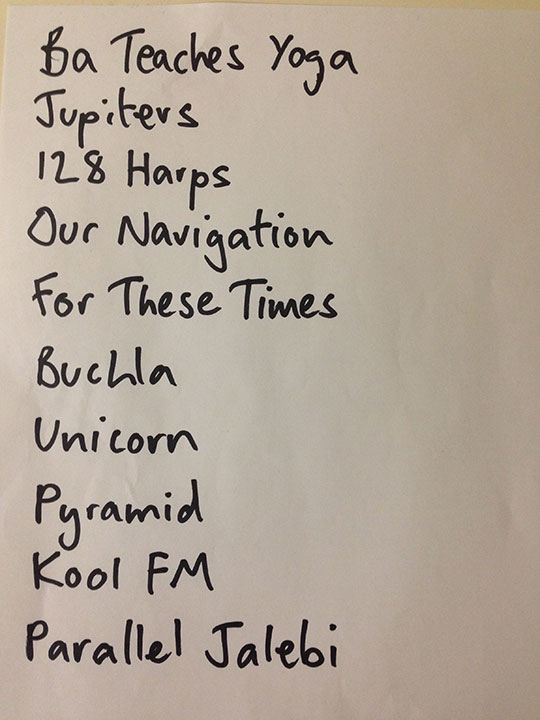 Ba Teaches Yoga
Jupiters
128 Harps
Our Navigation
For These Times
Buchla
Unicorn
Pyramid
Kool FM
Parallel Jalebi